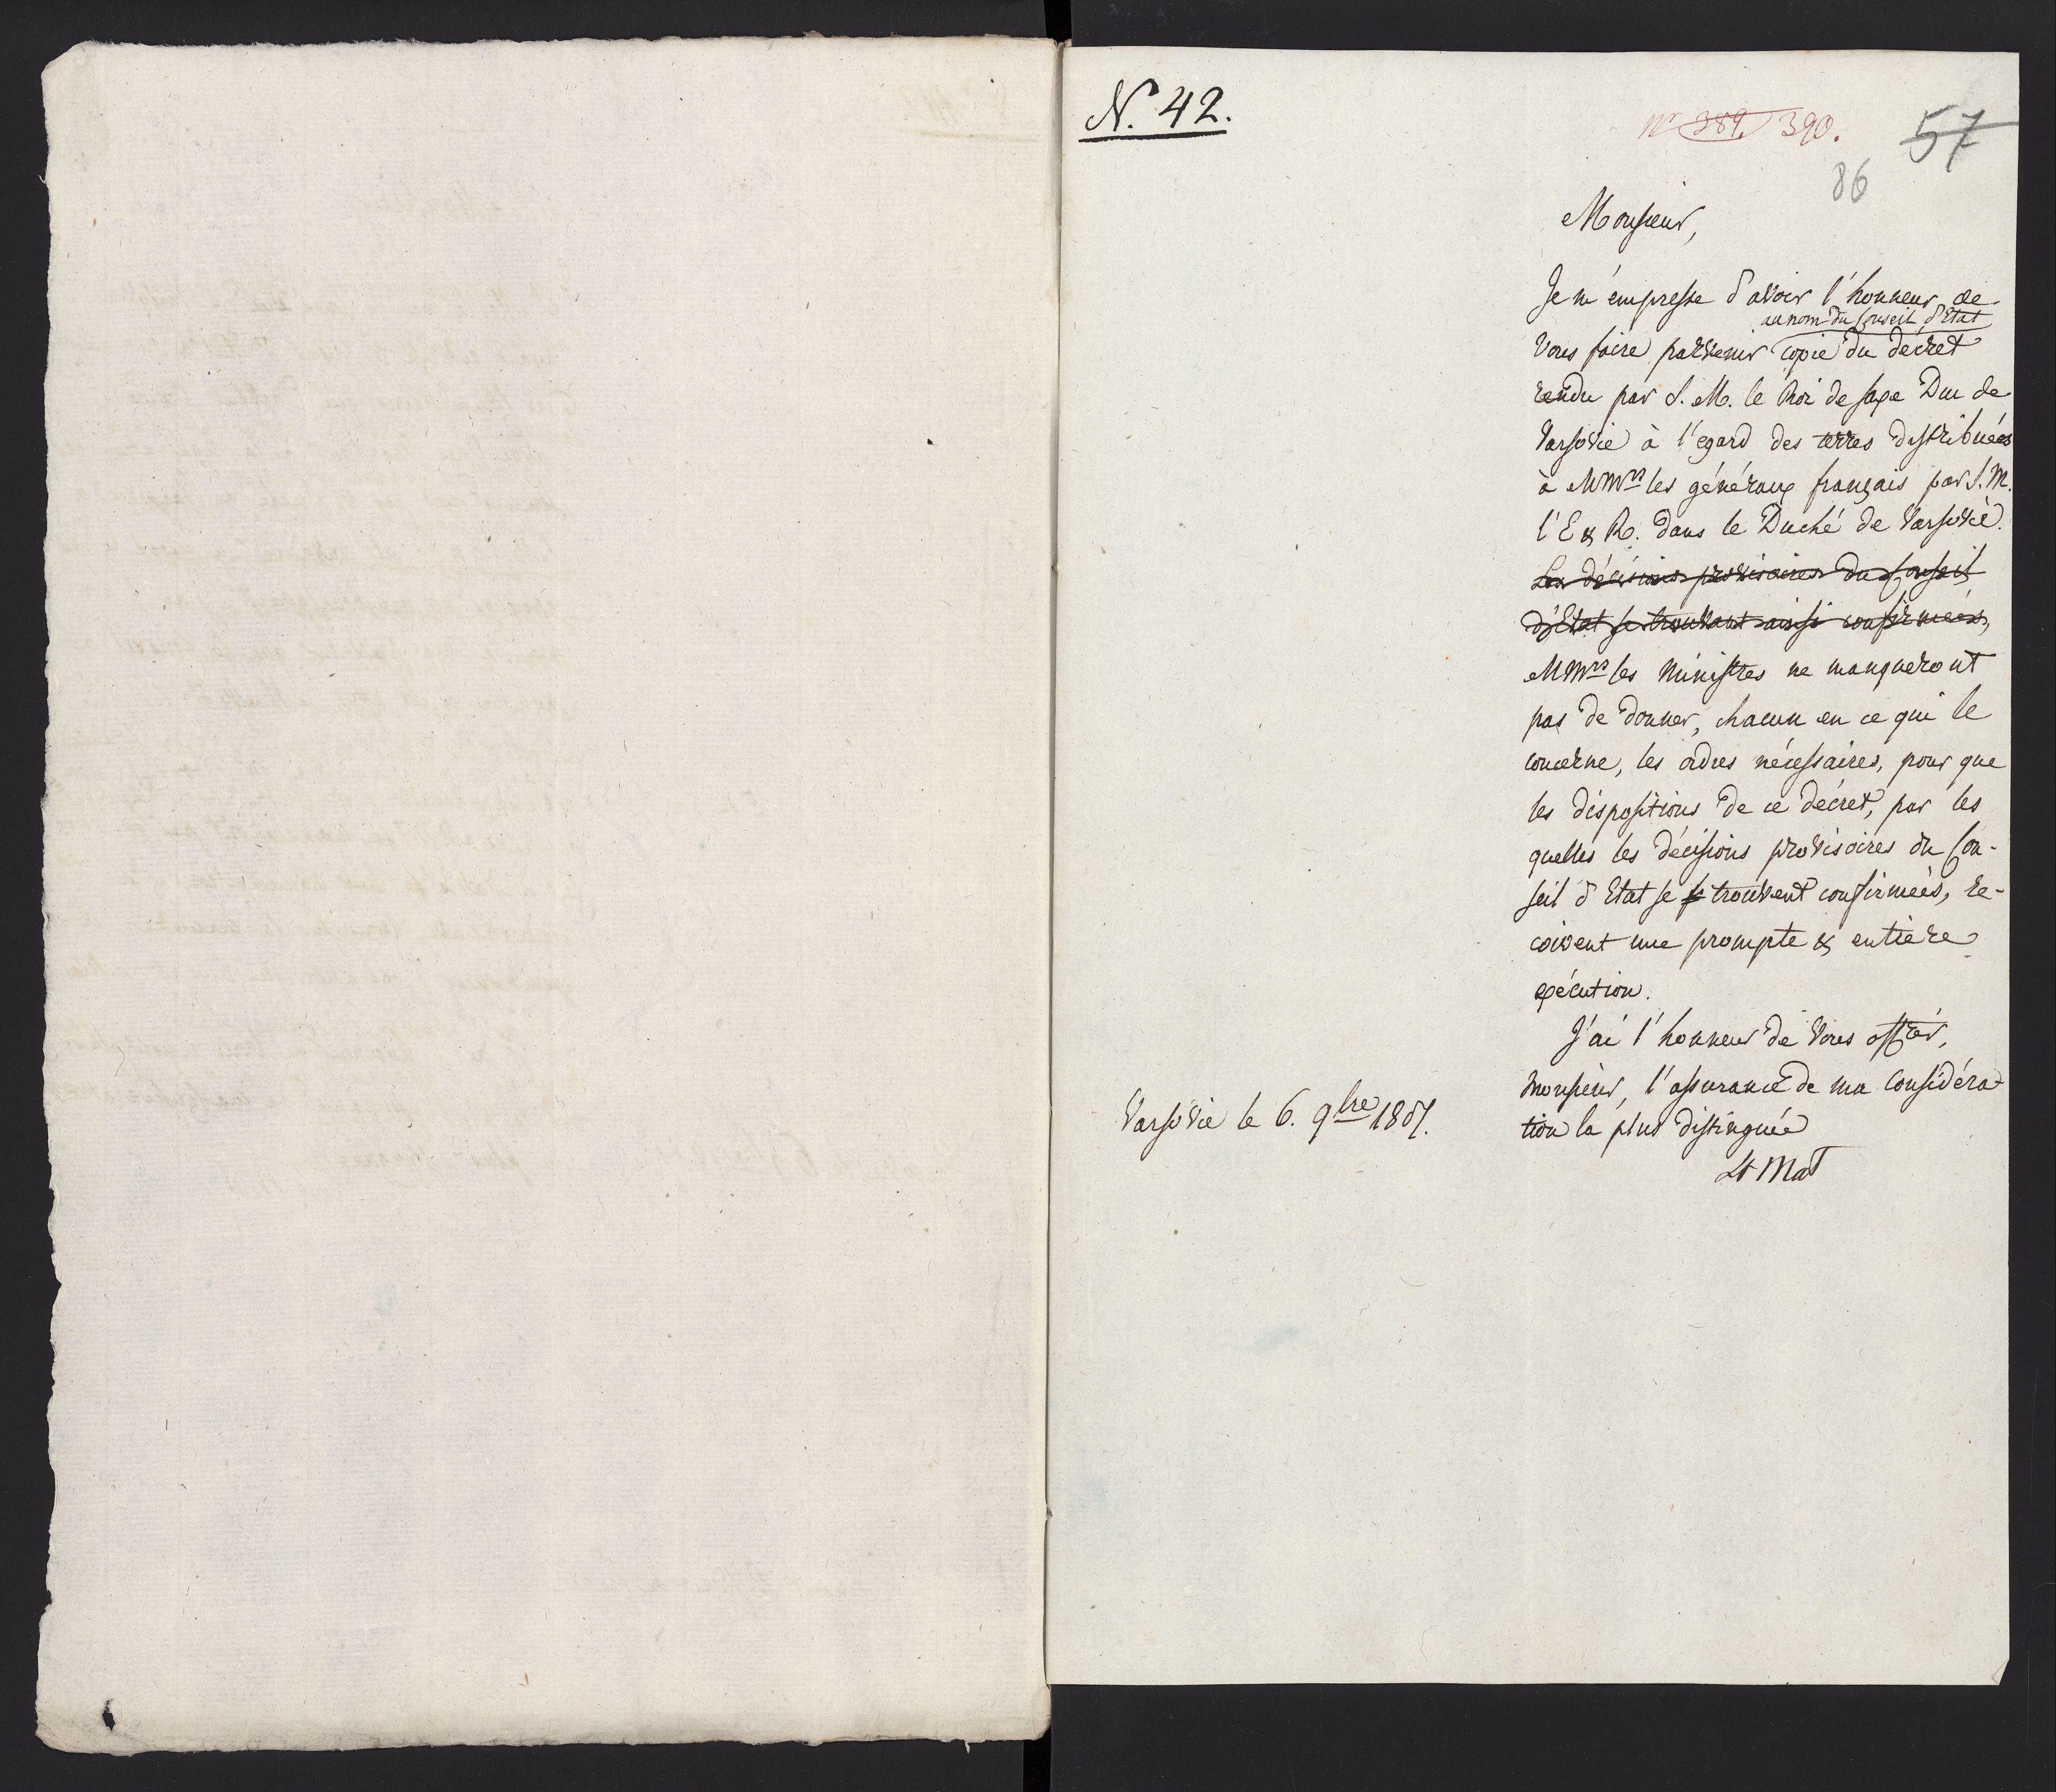 N. 42.
Nº 389. 390.
57
86
Monsieur,
Je m'empresse d'avoir l'honneur de
au nom du Conseil d'Etat
Vous faire parvenir copie du decret
rendu par S. M. le Roi de saxe Duc de
Varsovie à l'egard des terres distribuées
à MMrs les généraux français par S. M.
l'E & R. dans le Duché de Varsovie.
Les décisions provisoires du Conseil
d'Etat se trouvant ainsi confirmées,
MMrs les Ministres ne manqueront
pas de donner, chacun en ce qui le
concerne, les ordres nécessaires, pour que
les dispositions de ce decret, par les
quelles les décisions provisoires du Con-
seil d'Etat se trouvent confirmées, re-
coivent une prompte & entière
exécution.
J'ai l'honneur de Vous offrir,
Monsieur, l'assurance de ma considéra-
tion la plus distinguée
Varsovie le 6. 9bre 1807.